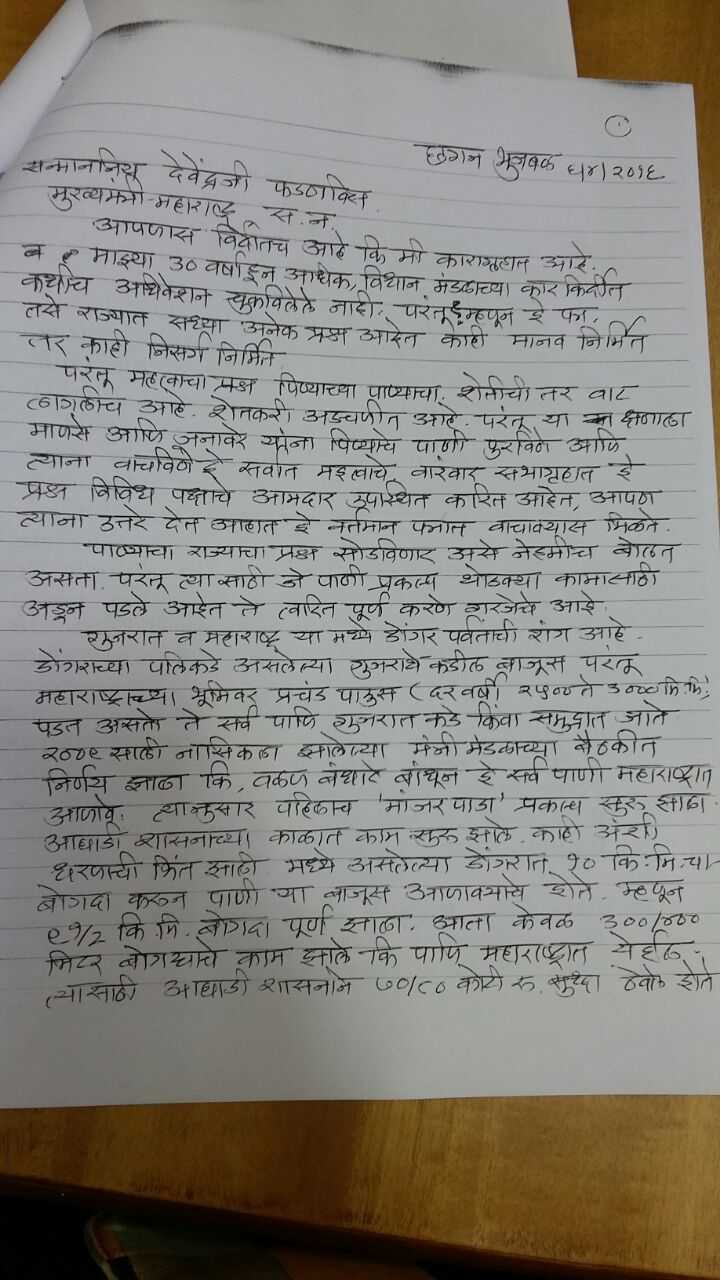 १
छगन भुजबळ ६/४/२०१६
सन्माननिय देवेंद्रजी फडणविस
मुख्यमंत्री-महाराष्ट्र स.न.
आपणास विदीतच आहे कि मी कारागृहात आहे.
व माझ्या ३० वर्षाहून अधिक, विधान मंडळाच्या कारकिर्दीत
कधीच अधिवेशन चुकविलेले नाही. परंतू म्हणून हे फा.
तसे राज्यात सध्या अनेक प्रश्न आहेत काही मानव निर्मित
तर काही निसर्ग निर्मित
परंतू महत्वाचा प्रश्न पिण्याच्या पाण्याचा. शेतीची तर वाट
लागलीच आहे. शेतकरी अडचणीत आहे. परंतू या क्षणाला
माणसे आणि जनावरे यांना पिण्याचे पाणी पुरविणे आणि
त्याना वाचविणे हे सर्वात महत्वाचे, वारंवार सभागृहात हे
प्रश्न विविध पक्षाचे आमदार उपस्थित करित आहेत, आपण
त्याना उत्तरे देत आहात हे वर्तमान पत्रात वाचावयास मिळते.
पाण्याचा राज्याचा प्रश्न सोडविणार असे नेहमीच बोलत
असता. परंतू त्यासाठी जे पाणी प्रकल्प थोडक्या कामासाठी
अडून पडले आहेत ते त्वरित पूर्ण करणे गरजेचे आहे.
गुजरात व महाराष्ट्र या मध्ये डोंगर पर्वताची रांग आहे.
डोंगराच्या पलिकडे असलेल्या गुजराथे कडील बाजूस परंतू
महाराष्ट्राच्या भूमिवर प्रचंड पाऊस (दरवर्षी २५०० ते ३००० मि.मि.)
पडत असतो ते सर्व पाणि गुजरात कडे किंवा समुद्रात जाते
२००९ साली नासिकला झालेल्या मंत्री मंडळाच्या बैठकीत
निर्णय झाला कि, वळण बंधारे बांधून हे सर्व पाणी महाराष्ट्रात
आणावे. त्यानुसार पहिलाच 'मांजरपाडा' प्रकल्प सुरु झाला.
आघाडी शासनाच्या काळात काम सुरु झाले. काही अंशी
धरणाची भिंत झाली मध्ये असलेल्या डोंगरात १० कि.मि.चा
बोगदा करुन पाणी या बाजूस आणावयाचे होते. म्हणून
९ १/२ कि.मि. बोगदा पूर्ण झाला. आता केवळ ३००/४००
मिटर बोगद्याचे काम झाले कि पाणि महाराष्ट्रात येईल.
त्यासाठी आघाडी शासनाने ७०/८० कोटी रु. सुध्दा ठेवले होते